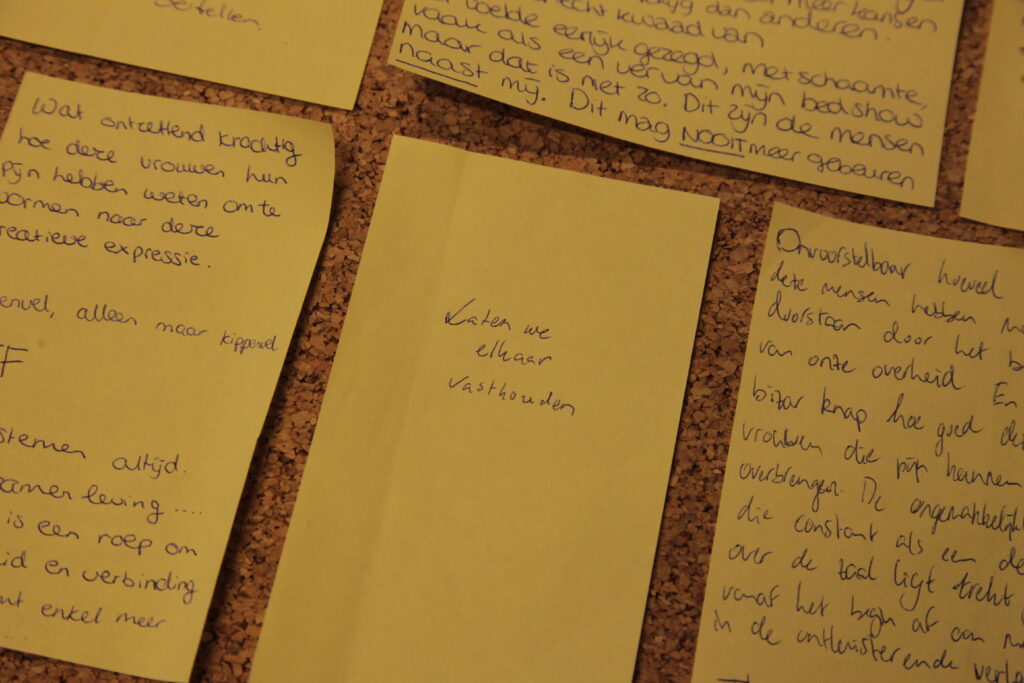 bestellen
meer kansen
krijg dan anderen.
echt kwaad van
voelde eerlijk gezegd, met schaamte,
vaak als een ver van mijn bedshow
maar dat is niet zo. Dit zijn de mensen
naast mij. Dit mag NOOIT meer gebeuren
Wat ontzettend krachtig
hoe deze vrouwen hun
pijn hebben weten om te
vormen naar deze
creatieve expressie.
alleen maar kippenvel
altijd.
samenleving ....
is een roep om
en verbinding
enkel meer
Laten we
elkaar
vasthouden
Onvoorstelbaar hoeveel
deze mensen hebben
doorstaan door het
van onze overheid. En
bizar knap hoe goed
vrouwen die pijn kunnen
overbrengen. De
die constant als een
over de zaal ligt trekt
vanaf het begin af aan
in de